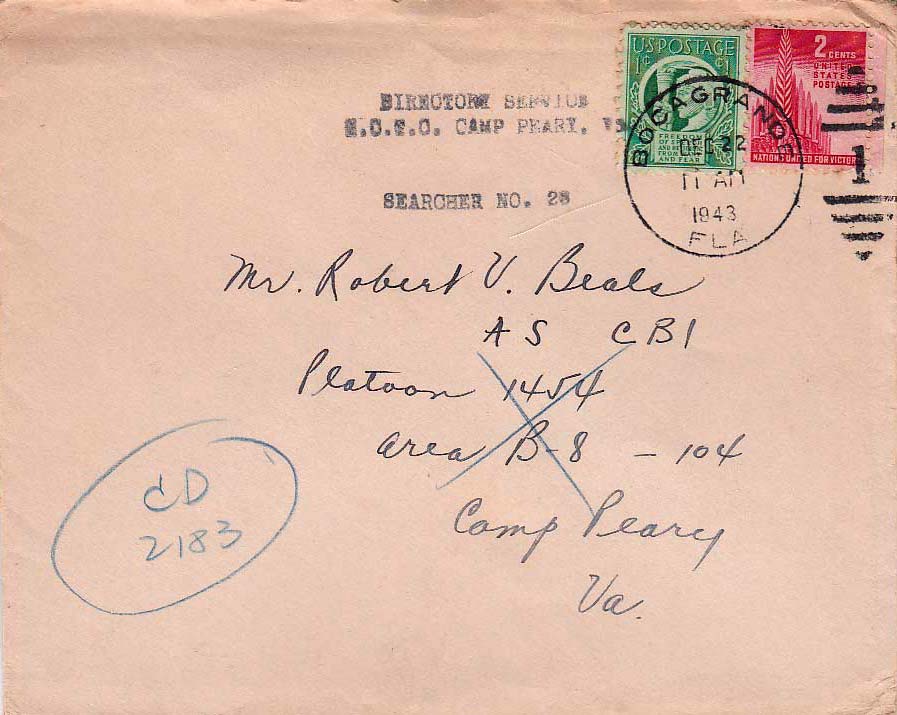 DIRECTORY SERVICE
N.C.T.C. CAMP PEARY, VA
SEARCHER NO. 28
US POSTAGE
1¢ ¢1
FREEDOM
OF SPEECH
AND RELIGION
FROM WANT
AND FEAR
2 CENTS
UNITED
STATES
POSTAGE
NATIONS UNITED FOR VICTORY
BOCA GRANDE
DEC 22
11 AM
1943
FLA
1
Mr. Robert V. Beals
AS CB1
Platoon 1454
Area B-8 - 104
Camp Peary
Va.
CD
2183